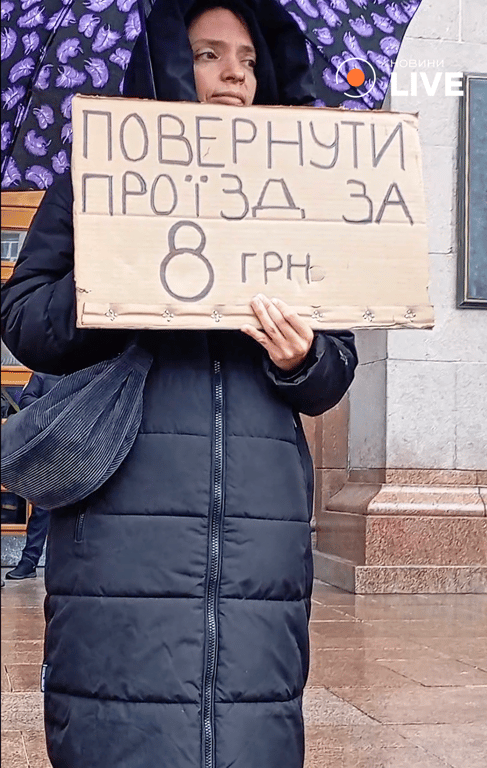 НОВИНИ
LIVE
ПОВЕРНУТИ
ПРОЇЗД ЗА
8 ГРН